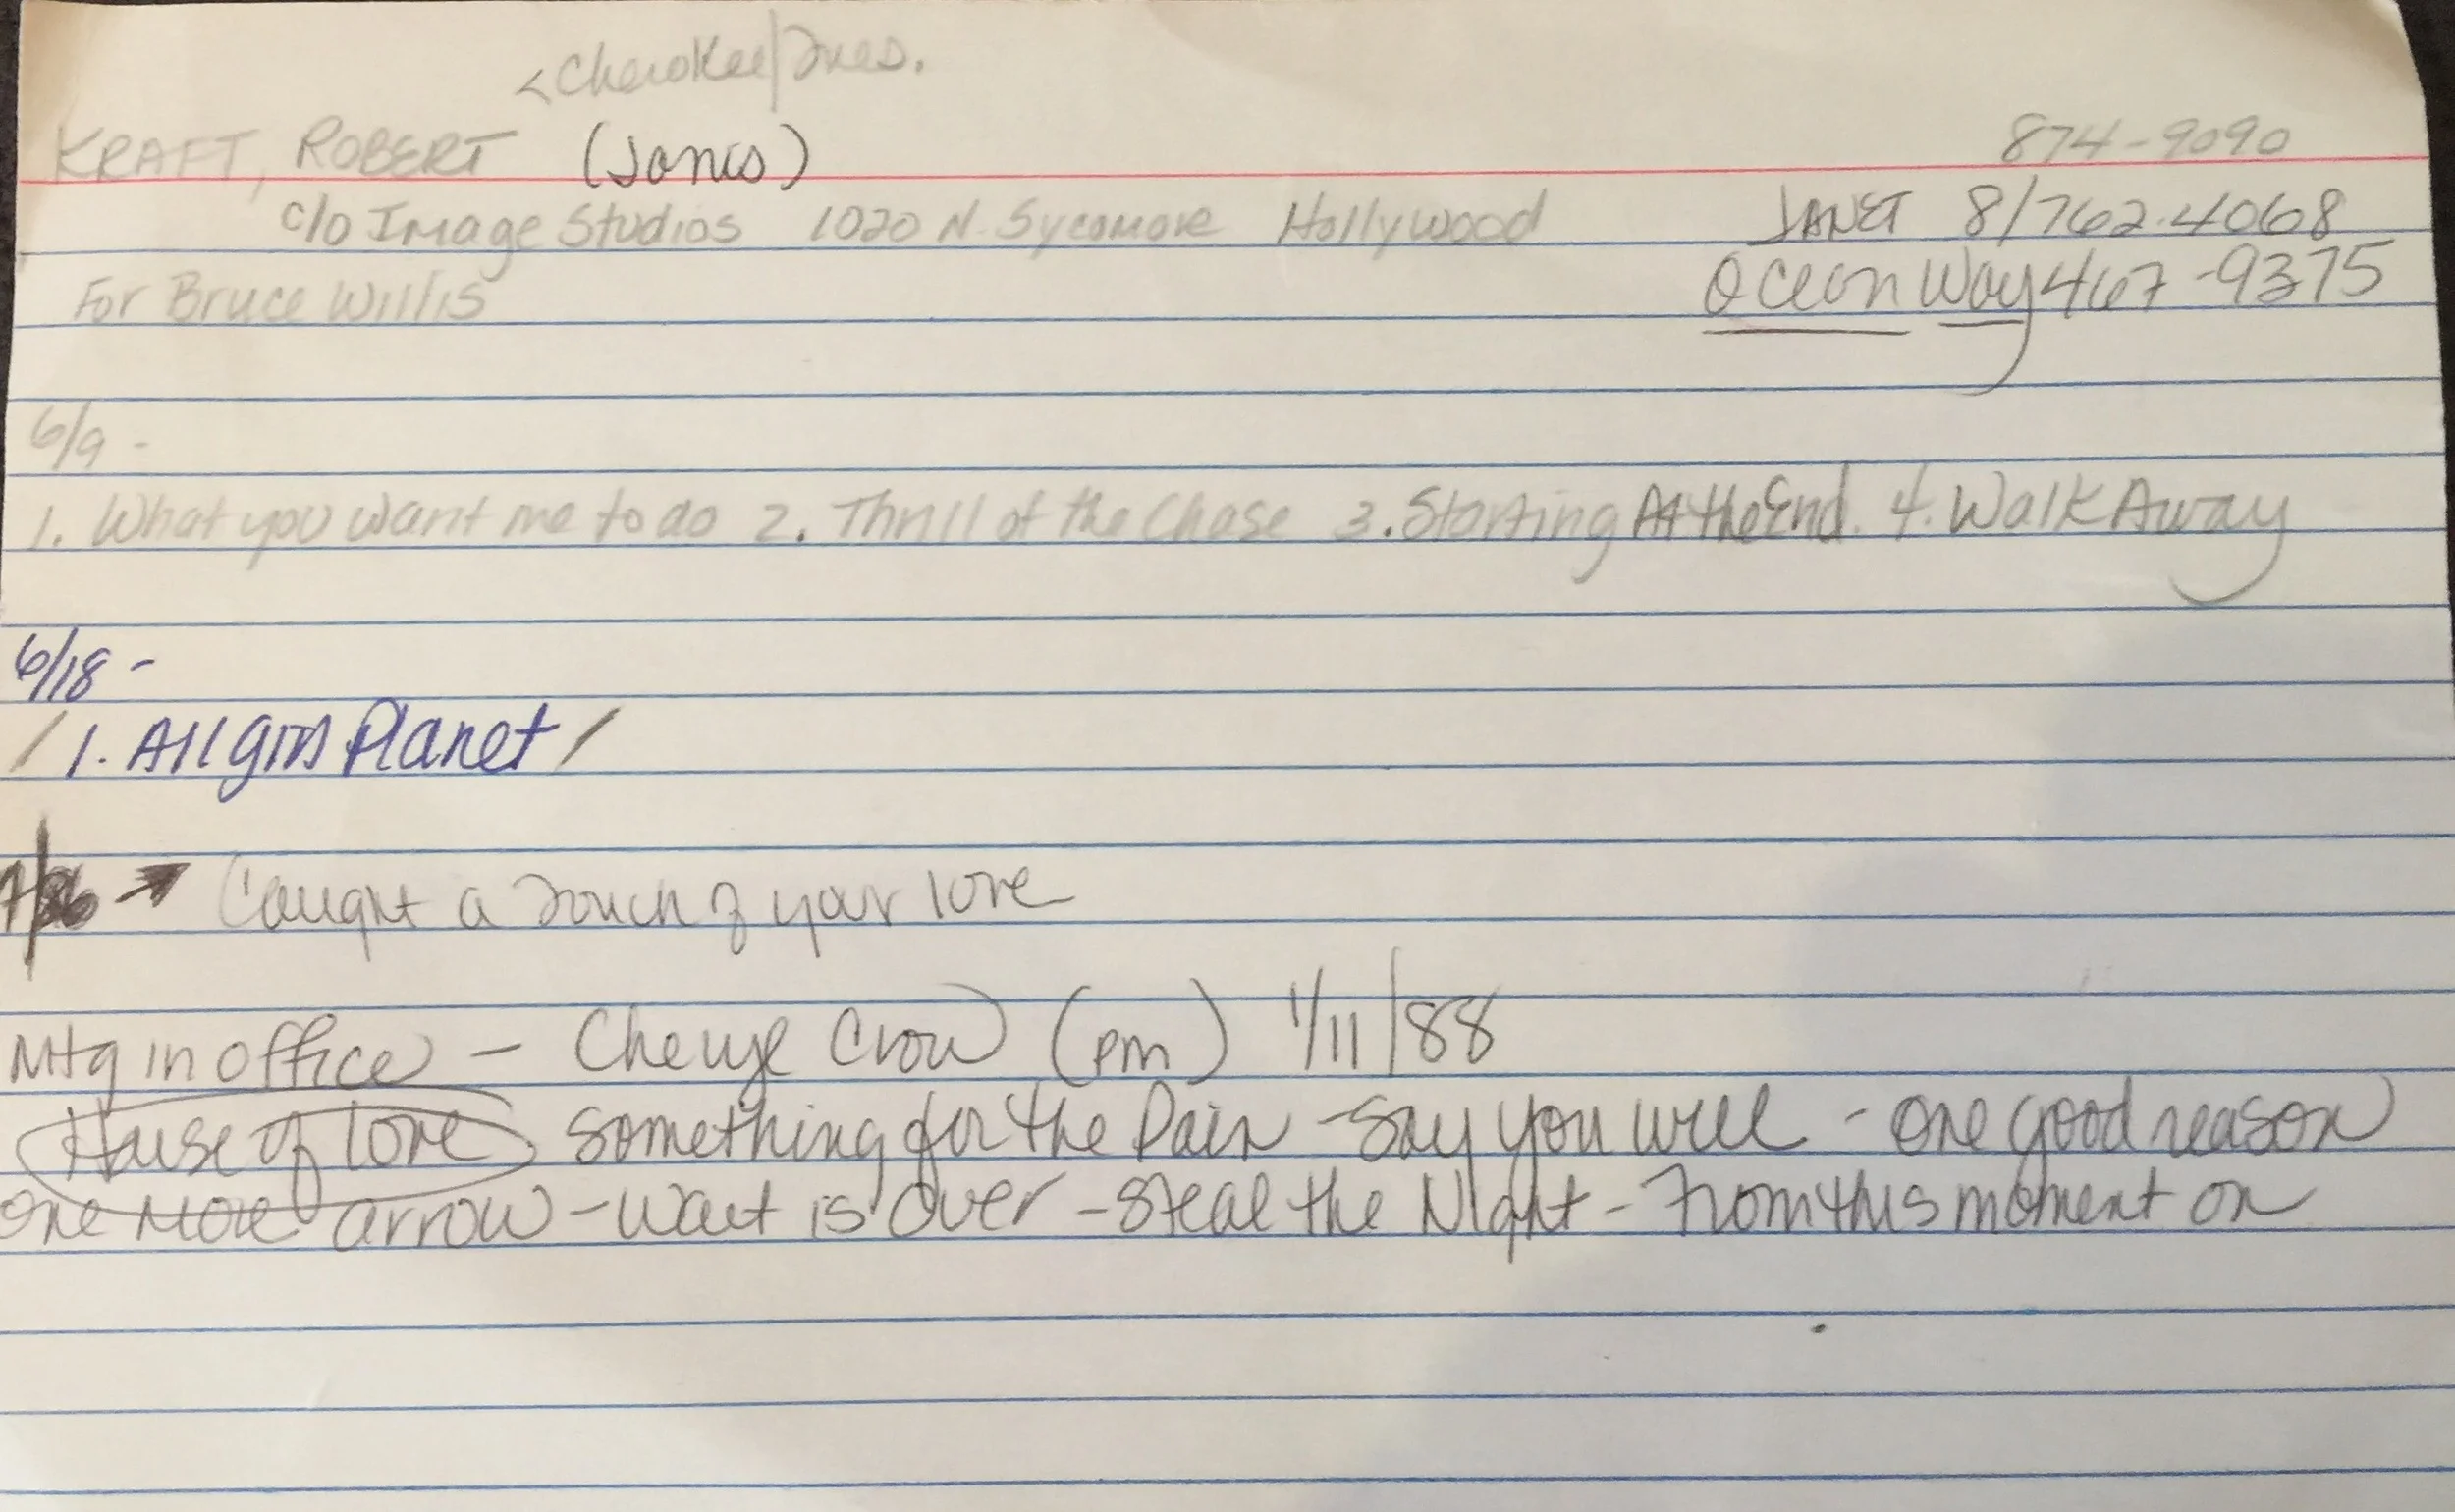 <Cherokee/Tues.
KRAFT, ROBERT (Janis) 874-9090
c/o Image Studios 1020 N. Sycamore Hollywood JANET 8/762-4068
For Bruce Willis Ocean Way 467-9375
6/9 -
1. What you want me to do 2. Thrill of the Chase 3. Starting At the End. 4. Walk Away
6/18 -
/ 1. All girls Planet /
→ Caught a Touch of your love
Mtg in office - Cheryl Crow (pm) 1/11/88
House of love something for the Pain - Say you will - one good reason
one more arrow - Wait is over - Steal the Night - From this moment on